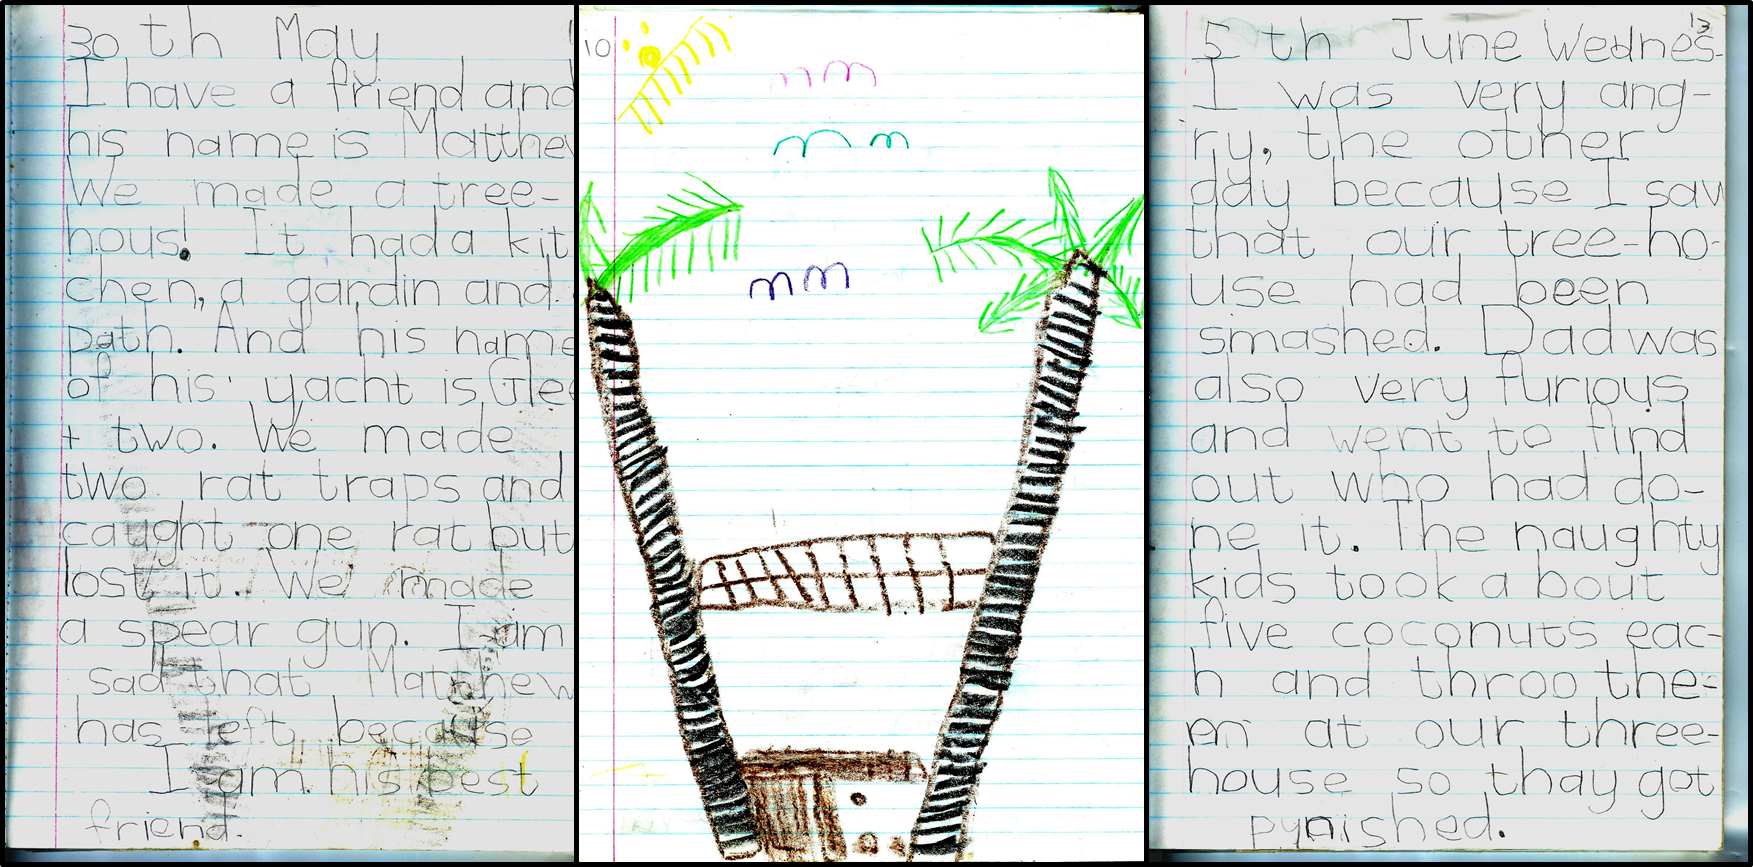 30 th May
I have a friend and
his name is Matthew
We made a tree-
hous! It had a kit
chen, a gardin and
path. And his name
of his yacht is Glee
+ two. We made
two rat traps and
caught one rat but
lost it. We made
a spear gun. I am
sad that Matthew
has left because
I am his best
friend.
10
13
5 th June Wednes-
I was very ang-
ry, the other
day because I saw
that our tree-ho-
use had been
smashed. Dad was
also very furious
and went to find
out who had do-
ne it. The naughty
kids took a bout
five coconuts eac-
h and throo the-
em at our three-
house so thay got
pynished.